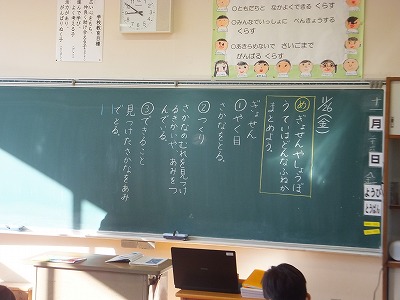 ○ともだちと なかよくできる くらす
○みんなでいっしょに べんきょうする
くらす
○あきらめないで さいごまで
がんばる くらす
学校教育目標
11/26(金)
め ぎょせんやしょうぼ
うていはどんなふねか
まとめよう。
ぎょせん
①やく目
さかなをとる。
②つくり
さかなのむれを見つけ
るきかいや あみをつ
んでいる。
③できること
見つけたさかなをあみ
でとる。
月
日
ようび
とうばん